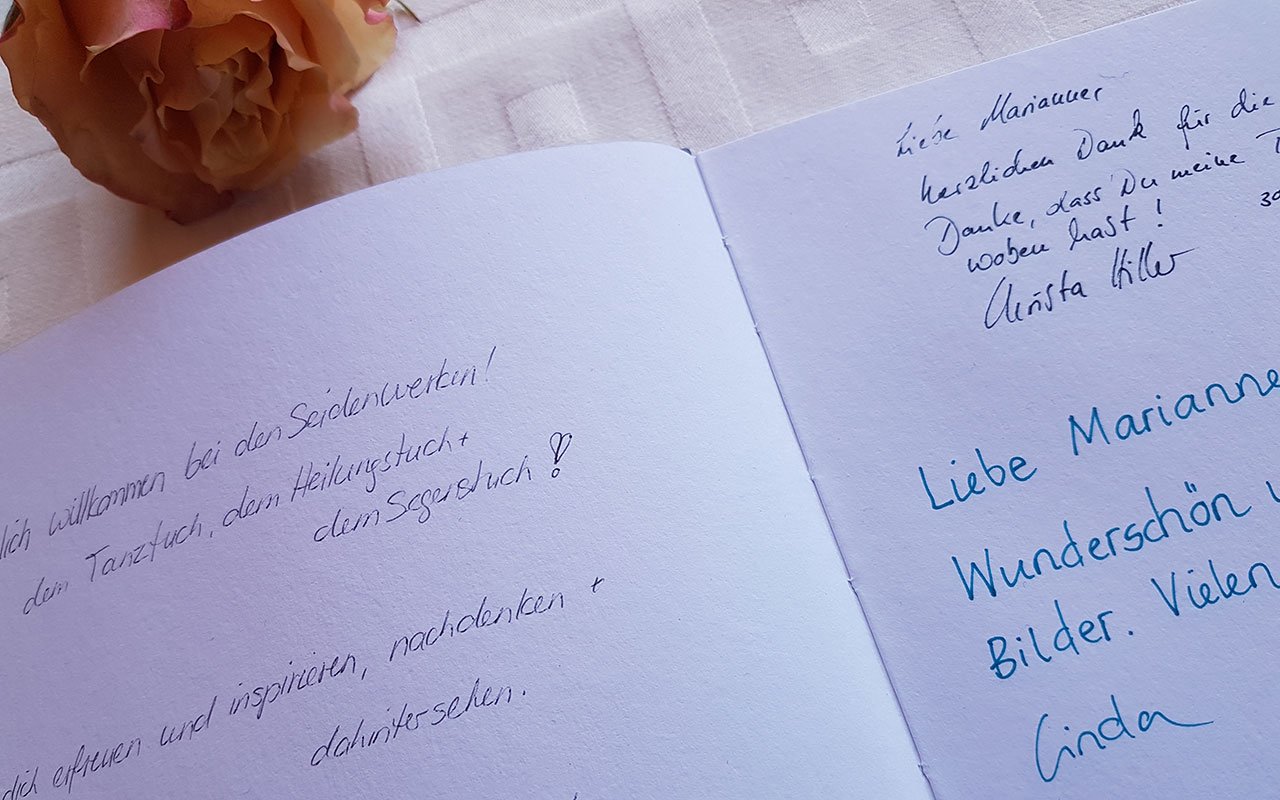 lich willkommen bei den Seidenwerken!
dem Tanztuch, dem Heilungstuch +
dem Segenstuch!
dich erfreuen und inspirieren, nachdenken +
dahinter sehen.
Liebe Marianne,
herzlichen Dank für die
Danke, dass Du meine T
woben hast!
30
Christa Hiller
Liebe Marianne
Wunderschön u
Bilder. Vielen
Linda